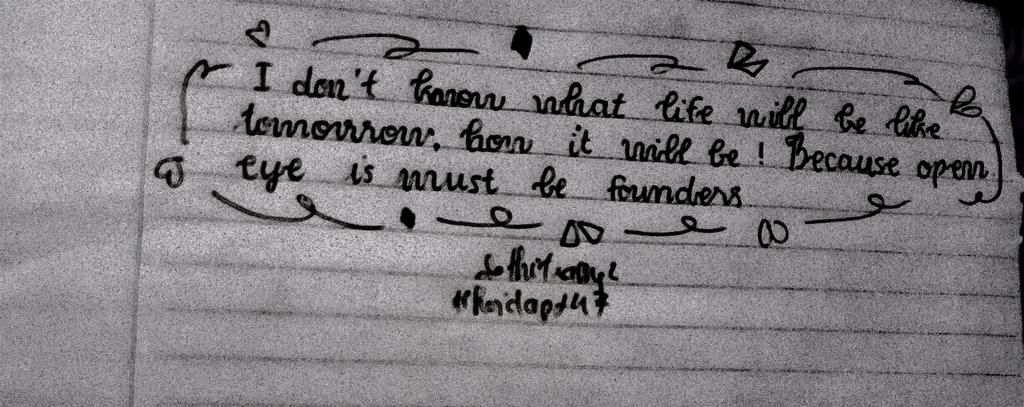 I don't know what life will be like
tomorrow, how it will be! Because openn
eye is must be founders